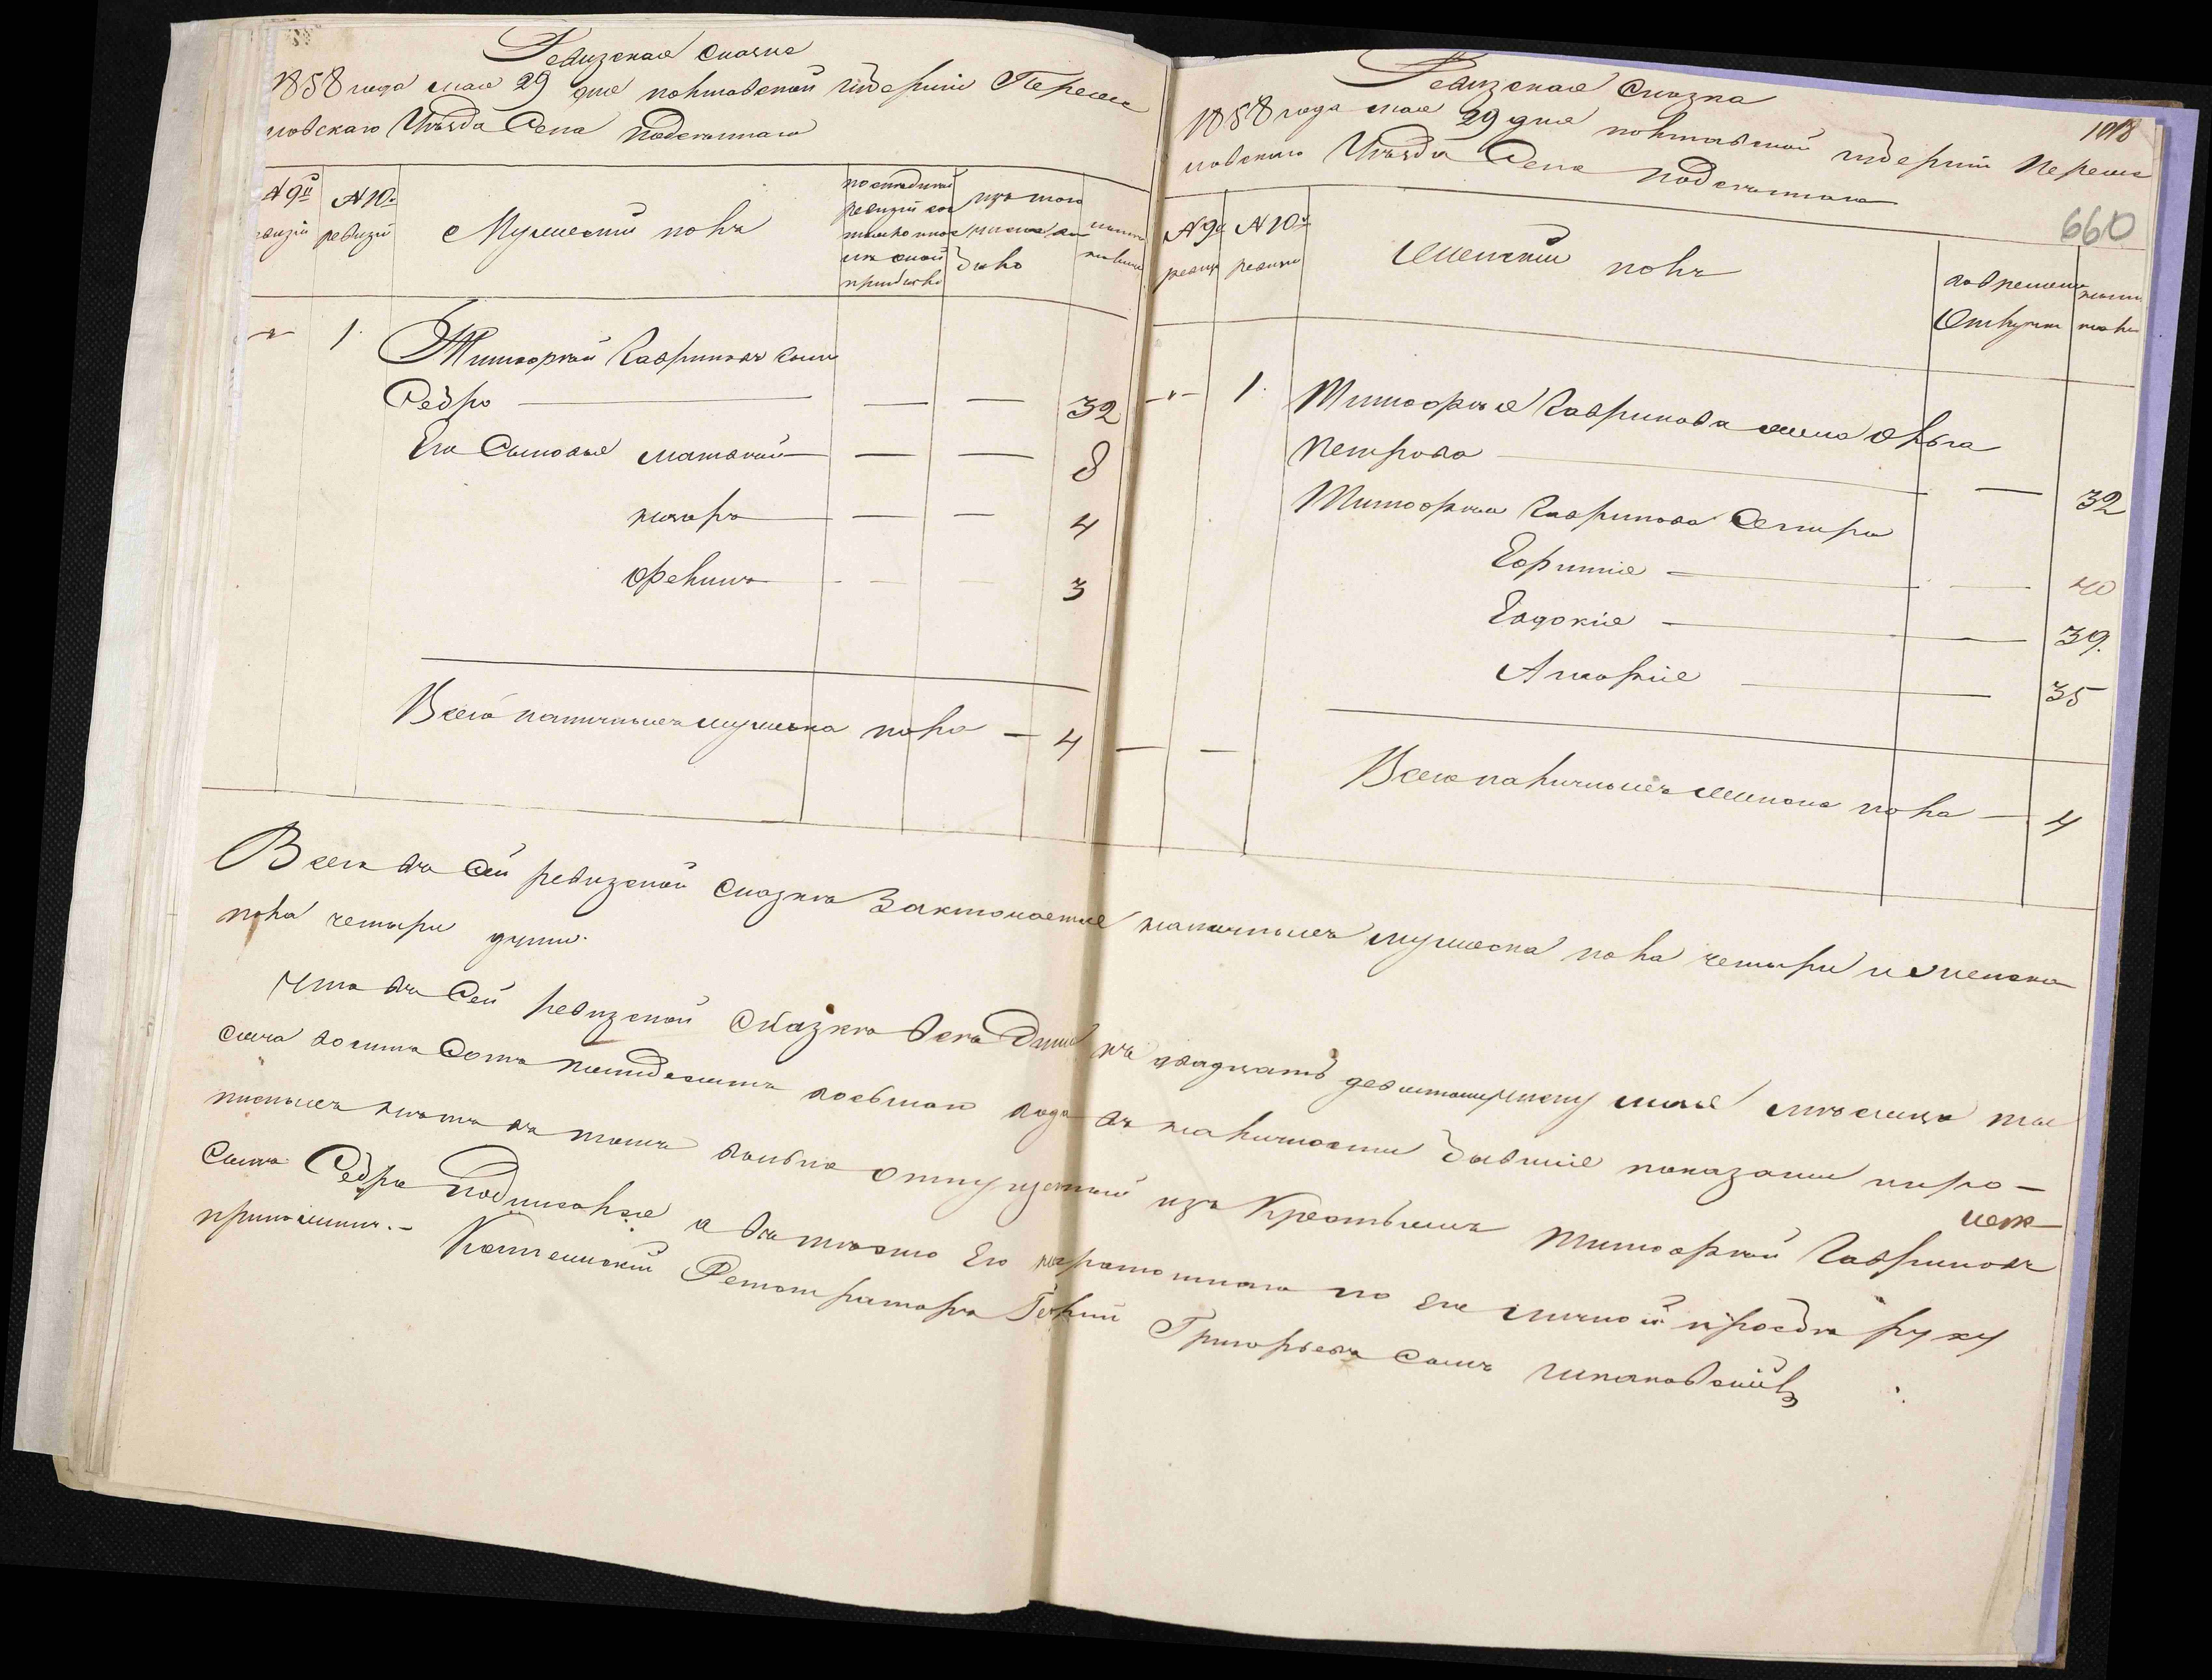 Ревизская Сказка
1858 года мая 29 дня полтавской губернии Переяс
ловскаго Уезда Села подсеннаго
№ 9й
ревизіи
№ 10й
ревизіи
Мужескій полъ
последней
ревизіи
прибыло
изъ того
число
было
ныне
на лицо
1. Тимофтей Гавриловъ сынъ
Себро — — — 32
Его Сыновья матвей — — — 8
назаръ — — — 4
3
Всего наличныхъ мужеска пола — 4
Ревизская Сказка
1858 года мая 29 дня полтавской губернии Переяс
ловскаго Уезда Села подсеннаго
1018
660
№ 9й
ревизіи
№ 10й
ревизіи
Женскій полъ
во временной
Отлучке
ныне
на лицо
1. Тимофтея Гаврилова жена
Петрова — — 32
Тимофтея Гаврилова Сестры
Ефимія — — 40
Евдокія — — 39.
35
Всего наличныхъ женска пола — 4
Всего въ Сей ревизской Сказке Заключается наличныхъ мужеска пола четыри и женска
пола четыри души.
Что въ Сей ревизской Сказке все Души къ двадцать девятому мая месяца ты
сяча восимь Сотъ пятдесятъ восьмаго года въ наличности бывшіе показаны и про-
писныхъ нетъ въ томъ вольно отпущенный изъ Крестьянъ Тимофтей Гавриловъ
Сынъ Себро подписался а вместо Его неграмотнаго по Его личной прозбе руку
приложилъ.- Колежскій Регистраторъ Григорьевъ Сынъ